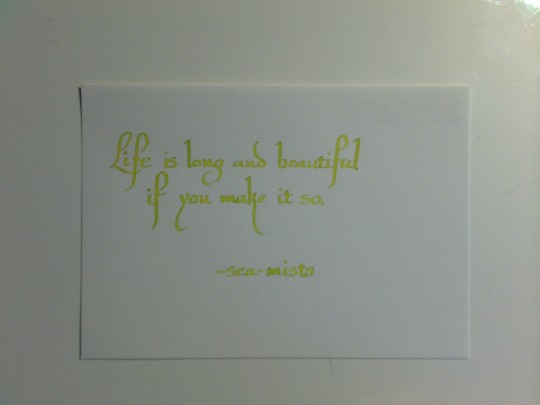 Life is long and beautiful
if you make it so.
~sea-mists